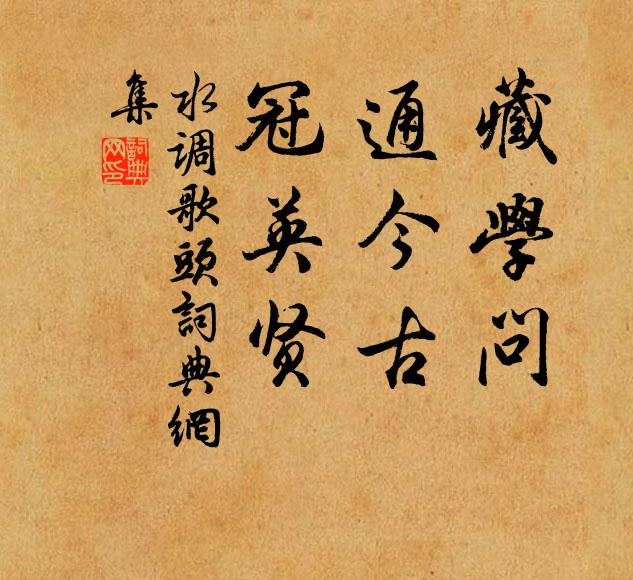 藏學問
通今古
冠英贤
水调歌頭詞典網
集
詞典
网印